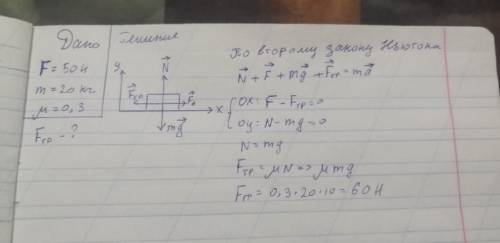 Дано
F = 50 Н
m = 20 кг
μ = 0,3
Fтр - ?
Решение
y
N⃗
F⃗тр
F⃗
x
mg⃗
По второму закону Ньютона
N⃗ + F⃗ + mg⃗ + F⃗тр = ma⃗
OX: F - Fтр = 0
OY: N - mg = 0
N = mg
Fтр = μN => μmg
Fтр = 0,3 · 20 · 10 = 60 Н